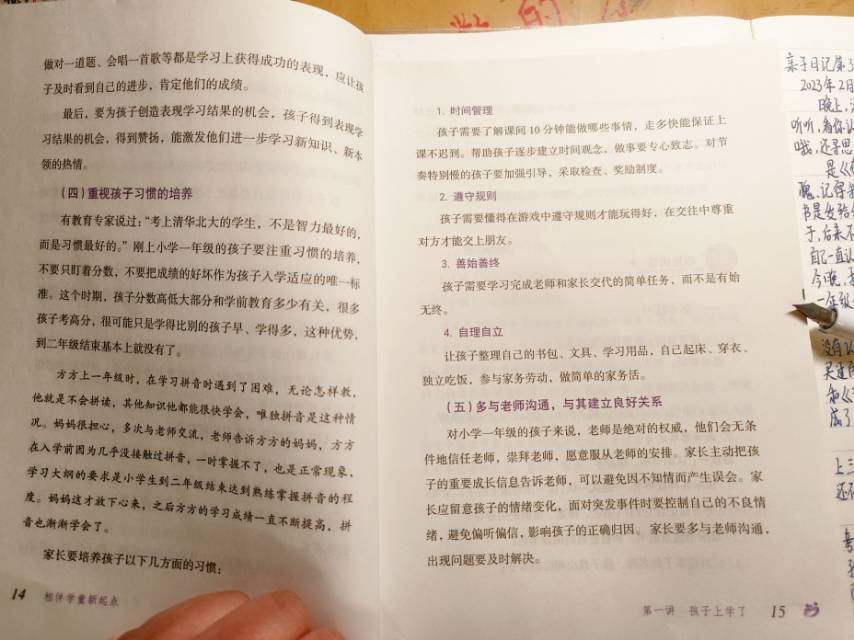 做对一道题、会唱一首歌等都是学习上获得成功的表现，应让孩
子及时看到自己的进步，肯定他们的成绩。
最后，要为孩子创造表现学习结果的机会，孩子得到表现学
习结果的机会，得到赞扬，能激发他们进一步学习新知识、新本
领的热情。
（四）重视孩子习惯的培养
有教育专家说过：“考上清华北大的学生，不是智力最好的，
而是习惯最好的。”刚上小学一年级的孩子要注重习惯的培养，
不要只盯着分数，不要把成绩的好坏作为孩子入学适应的唯一标
准。这个时期，孩子分数高低大部分和学前教育多少有关，很多
孩子考高分，很可能只是学得比别的孩子早、学得多，这种优势，
到二年级结束基本上就没有了。
方方上一年级时，在学习拼音时遇到了困难，无论怎样教，
他就是不会拼读，其他知识他都能很快学会，唯独拼音是这种情
况。妈妈很担心，多次与老师交流，老师告诉方方的妈妈，方方
在入学前因为几乎没接触过拼音，一时掌握不了，也是正常现象，
学习大纲的要求是小学生到二年级结束达到熟练掌握拼音的程
度。妈妈这才放下心来，之后方方的学习成绩一直不断提高，拼
音也渐渐学会了。
家长要培养孩子以下几方面的习惯：
14 相伴学童新起点
1. 时间管理
孩子需要了解课间10分钟能做哪些事情，走多快能保证上
课不迟到。帮助孩子逐步建立时间观念，做事要专心致志。对节
奏特别慢的孩子要加强引导，采取检查、奖励制度。
2. 遵守规则
孩子需要懂得在游戏中遵守规则才能玩得好，在交往中尊重
对方才能交上朋友。
3. 善始善终
孩子需要学习完成老师和家长交代的简单任务，而不是有始
无终。
4. 自理自立
让孩子整理自己的书包、文具、学习用品，自己起床、穿衣、
独立吃饭，参与家务劳动，做简单的家务活。
（五）多与老师沟通，与其建立良好关系
对小学一年级的孩子来说，老师是绝对的权威，他们会无条
件地信任老师，崇拜老师，愿意服从老师的安排。家长主动把孩
子的重要成长信息告诉老师，可以避免因不知情而产生误会。家
长应留意孩子的情绪变化，面对突发事件时要控制自己的不良情
绪，避免偏听偏信，影响孩子的正确归因。家长要多与老师沟通，
出现问题要及时解决。
第一讲 孩子上学了 15
亲子日记第3
2023年2月
晚上，
听听，看你认
哦，还寻思
自己一直认
今晚，
一年级
没有认
成了
上三